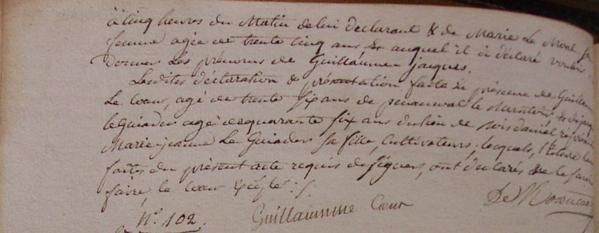 à cinq heures du matin de lui déclarant & de Marie Le Moal sa
femme agée de trente cinq ans & auquel il a déclaré vouloir
donner les prénoms de Guillaume jacques.
Lesdites déclaration & présentation faites en présence de Guillaume
Le Cœur, agé de trente six ans de
le Guiader agé de quarante six ans du lieu de
Marie-jeanne Le Guiader sa fille, Cultivateurs, lesquels, lecture leur
faite du présent acte requis de signer, ont déclarés ne le savoir
faire le cœur excepté ./.
N.° 102. Guillaumme Cœur